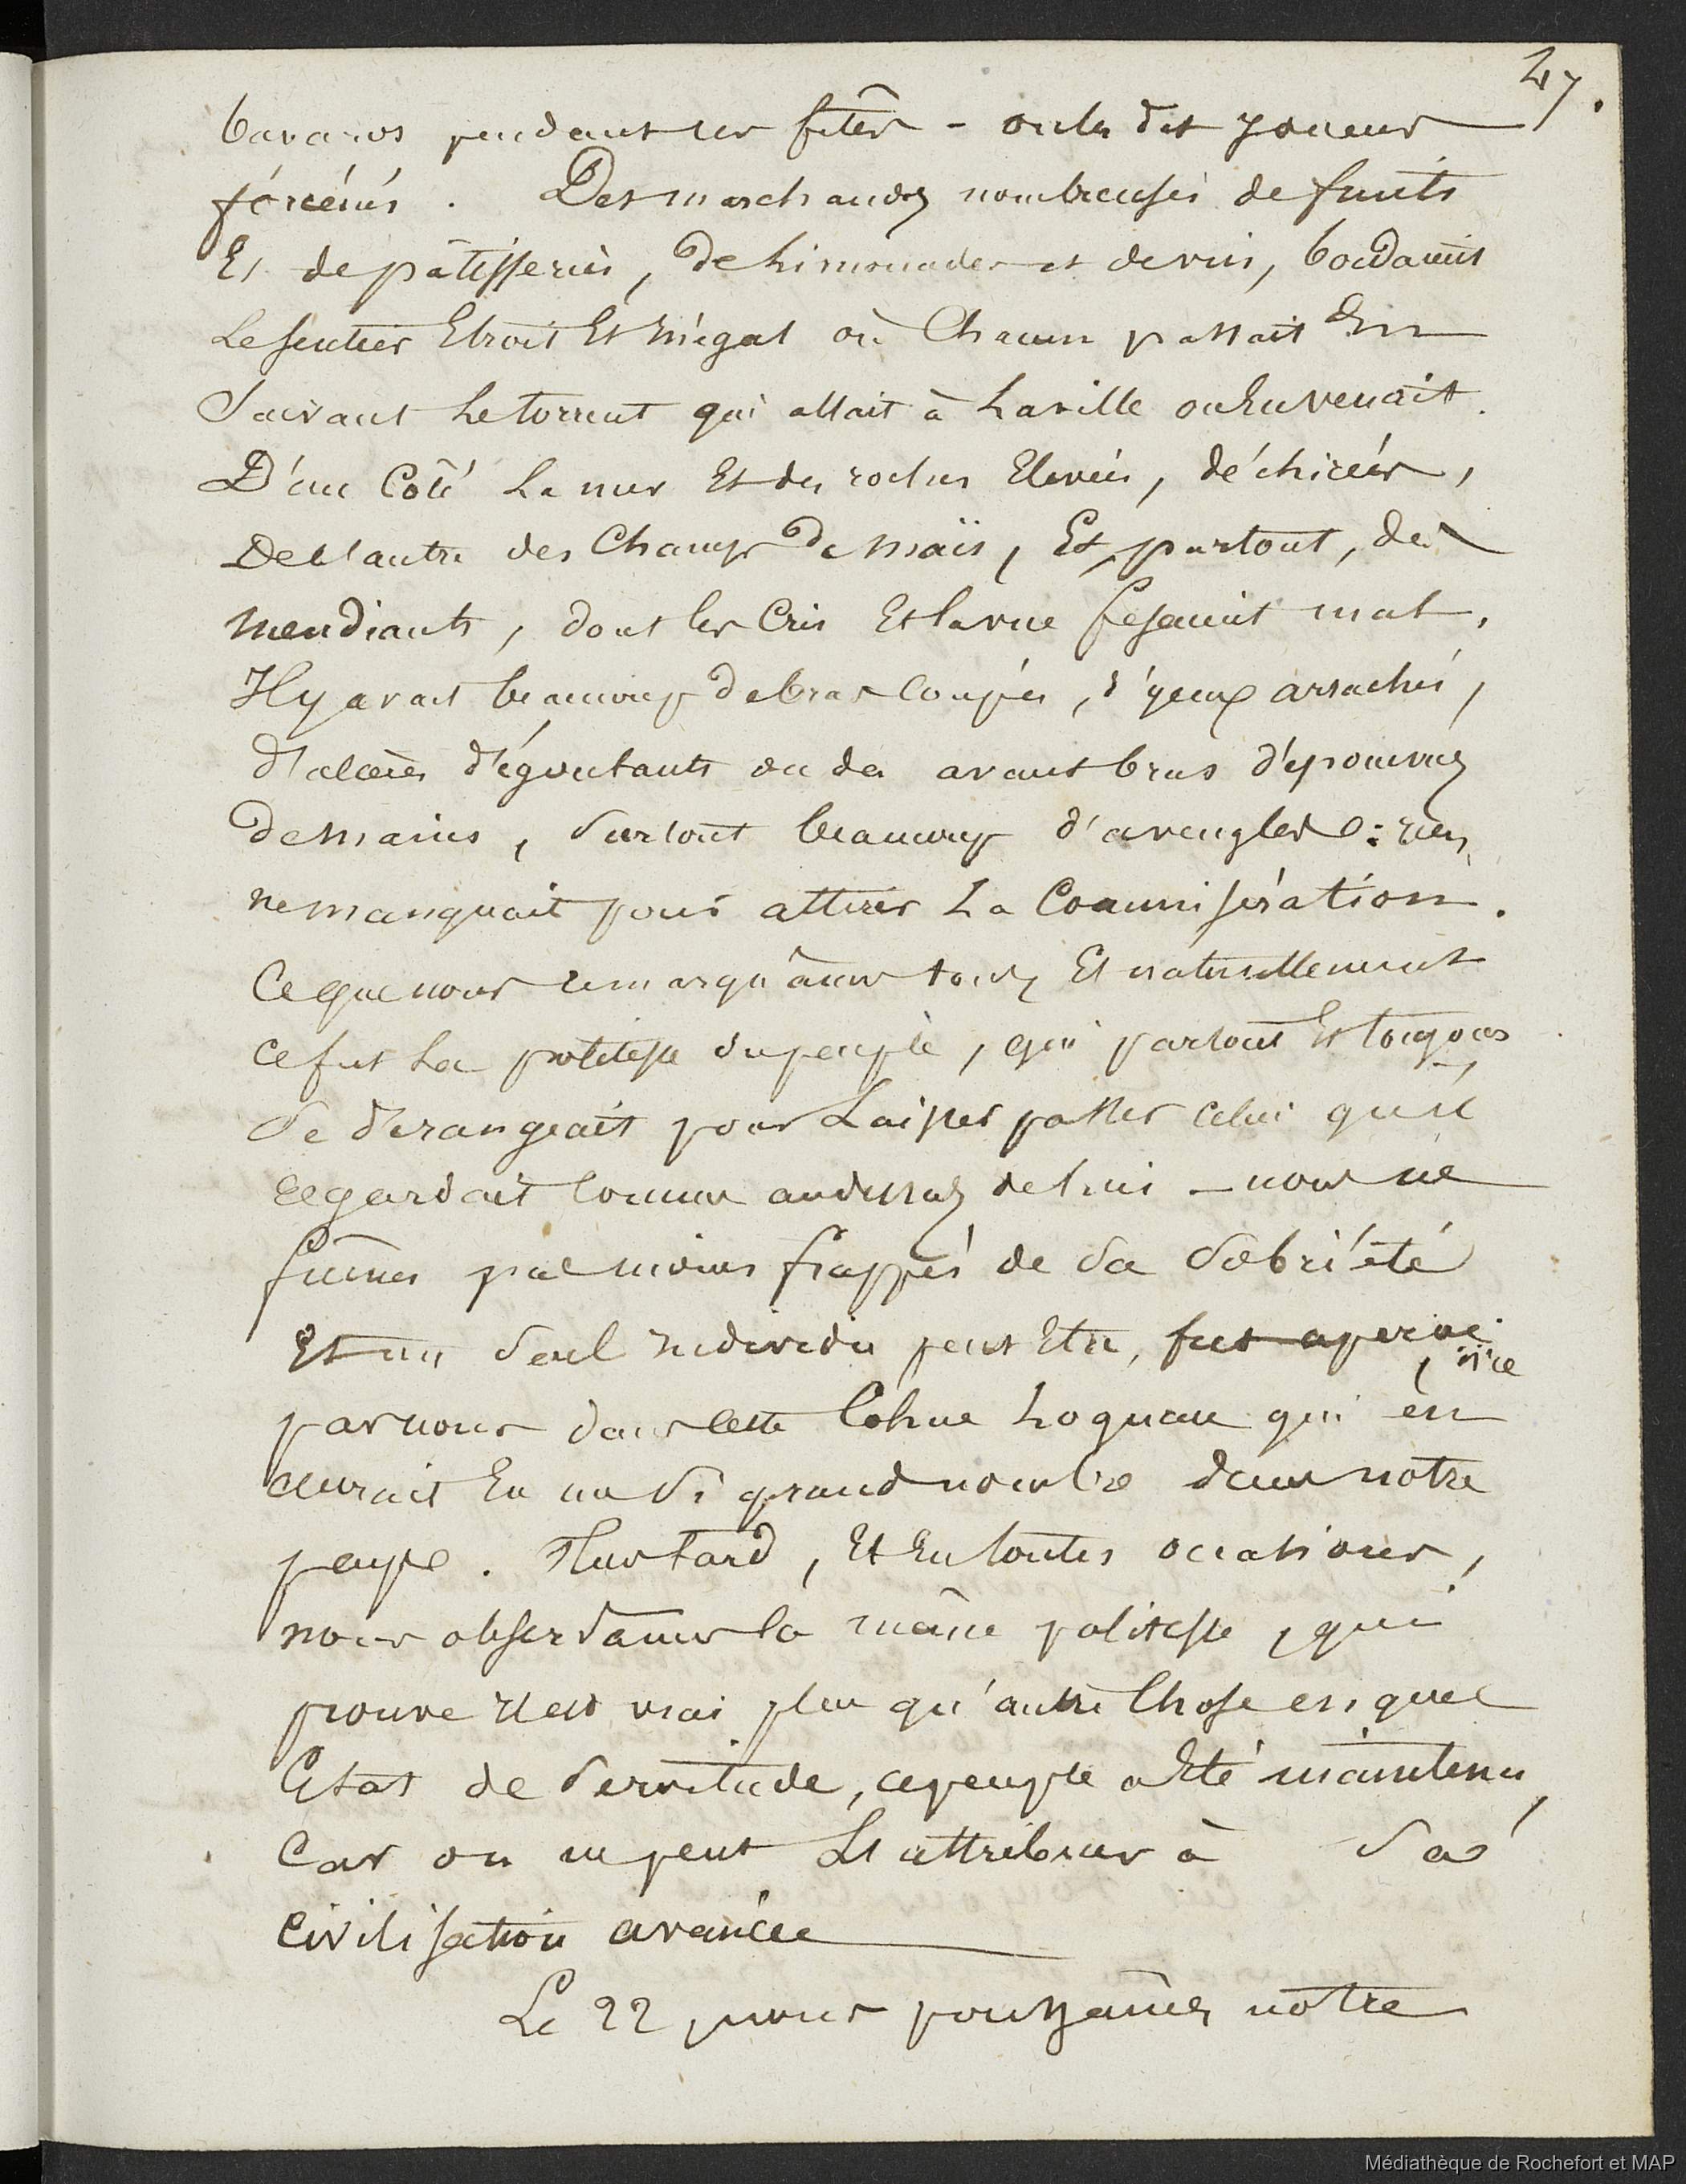 47.
bavards pendant les fêtes - on les dit joueurs
fórcénés . Des marchandes nombreuses de fruits
Et de pâtisseries, De Limonades et de vin, bordaient
Le sentier Etroit Et inégal où Chacun passait En
Suivant Le torrent qui allait à La ville ou En venait.
D'un Côté La mer Et des roches Elevées, déchirées,
De l'autre des Champs De Maïs, Et, partout, des
mendiants, dont les Cris Et la vue fesaient mal.
Il y avait beaucoup De bras Coupés, d'yeux arrachés,
d'ulcères dégoutants ou des avant bras dépourvus
De Mains, Surtout beaucoup d'aveugles : rien
ne manquait pour attirer La Commisération.
Ce que nous remarquâmes tous Et naturellement
ce fut La politesse du peuple, qui partout Et toujours
Se dérangeait pour Laisser passer celui qu'il
regardait Comme au dessus de Lui - nous ne
fûmes pas moins frappés de Sa Sobriété
Et un Seul individu peut Etre, fut aperçu ivre
par nous dans Cette Cohue Loqueuse qui en
aurait Eu un Si grand nombre dans notre
pays. Plus tard, Et En toutes occasions,
nous observâmes la même politesse, qui
prouve il est vrai plus qu'autre Chose en quel
Etat de Servitude, ce peuple a Eté maintenu,
Car on ne peut L'attribuer à Sa
Civilisation avancée
Le 22 nous poussâmes notre
Médiathèque de Rochefort et MAP